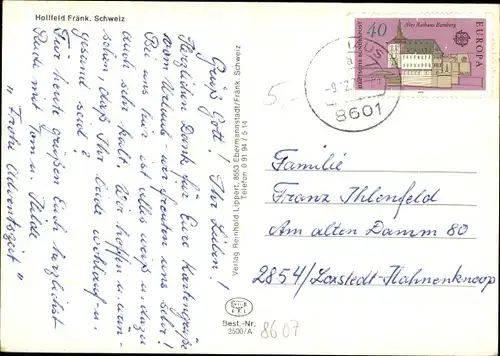 Hollfeld Fränk. Schweiz
Grüß Gott! Ihr Lieben!
Herzlichen Dank für Eure Kartengrüße
vom Urlaub - wir freuten uns sehr!
Bei uns hier ist alles weiß u. dazu
auch sehr kalt. Wir hoffen u. wün-
schen, daß Ihr beide wohlauf u.
gesund seid?
Für heute grüßen Euch herzlichst
"Frohe Adventszeit"
Verlag Reinhold Lippert, 8553 Ebermannstadt/Fränk. Schweiz
Telefon 0 91 94 / 5 14
Best.-Nr.
3500/A
8607
5,-
40
Altes Rathaus Bamberg
EUROPA
CEPT
DEUTSCHE BUNDESPOST
8601
Familie
Franz Ihlenfeld
Am alten Damm 80
2854/Loxstedt-Hahnenknoop